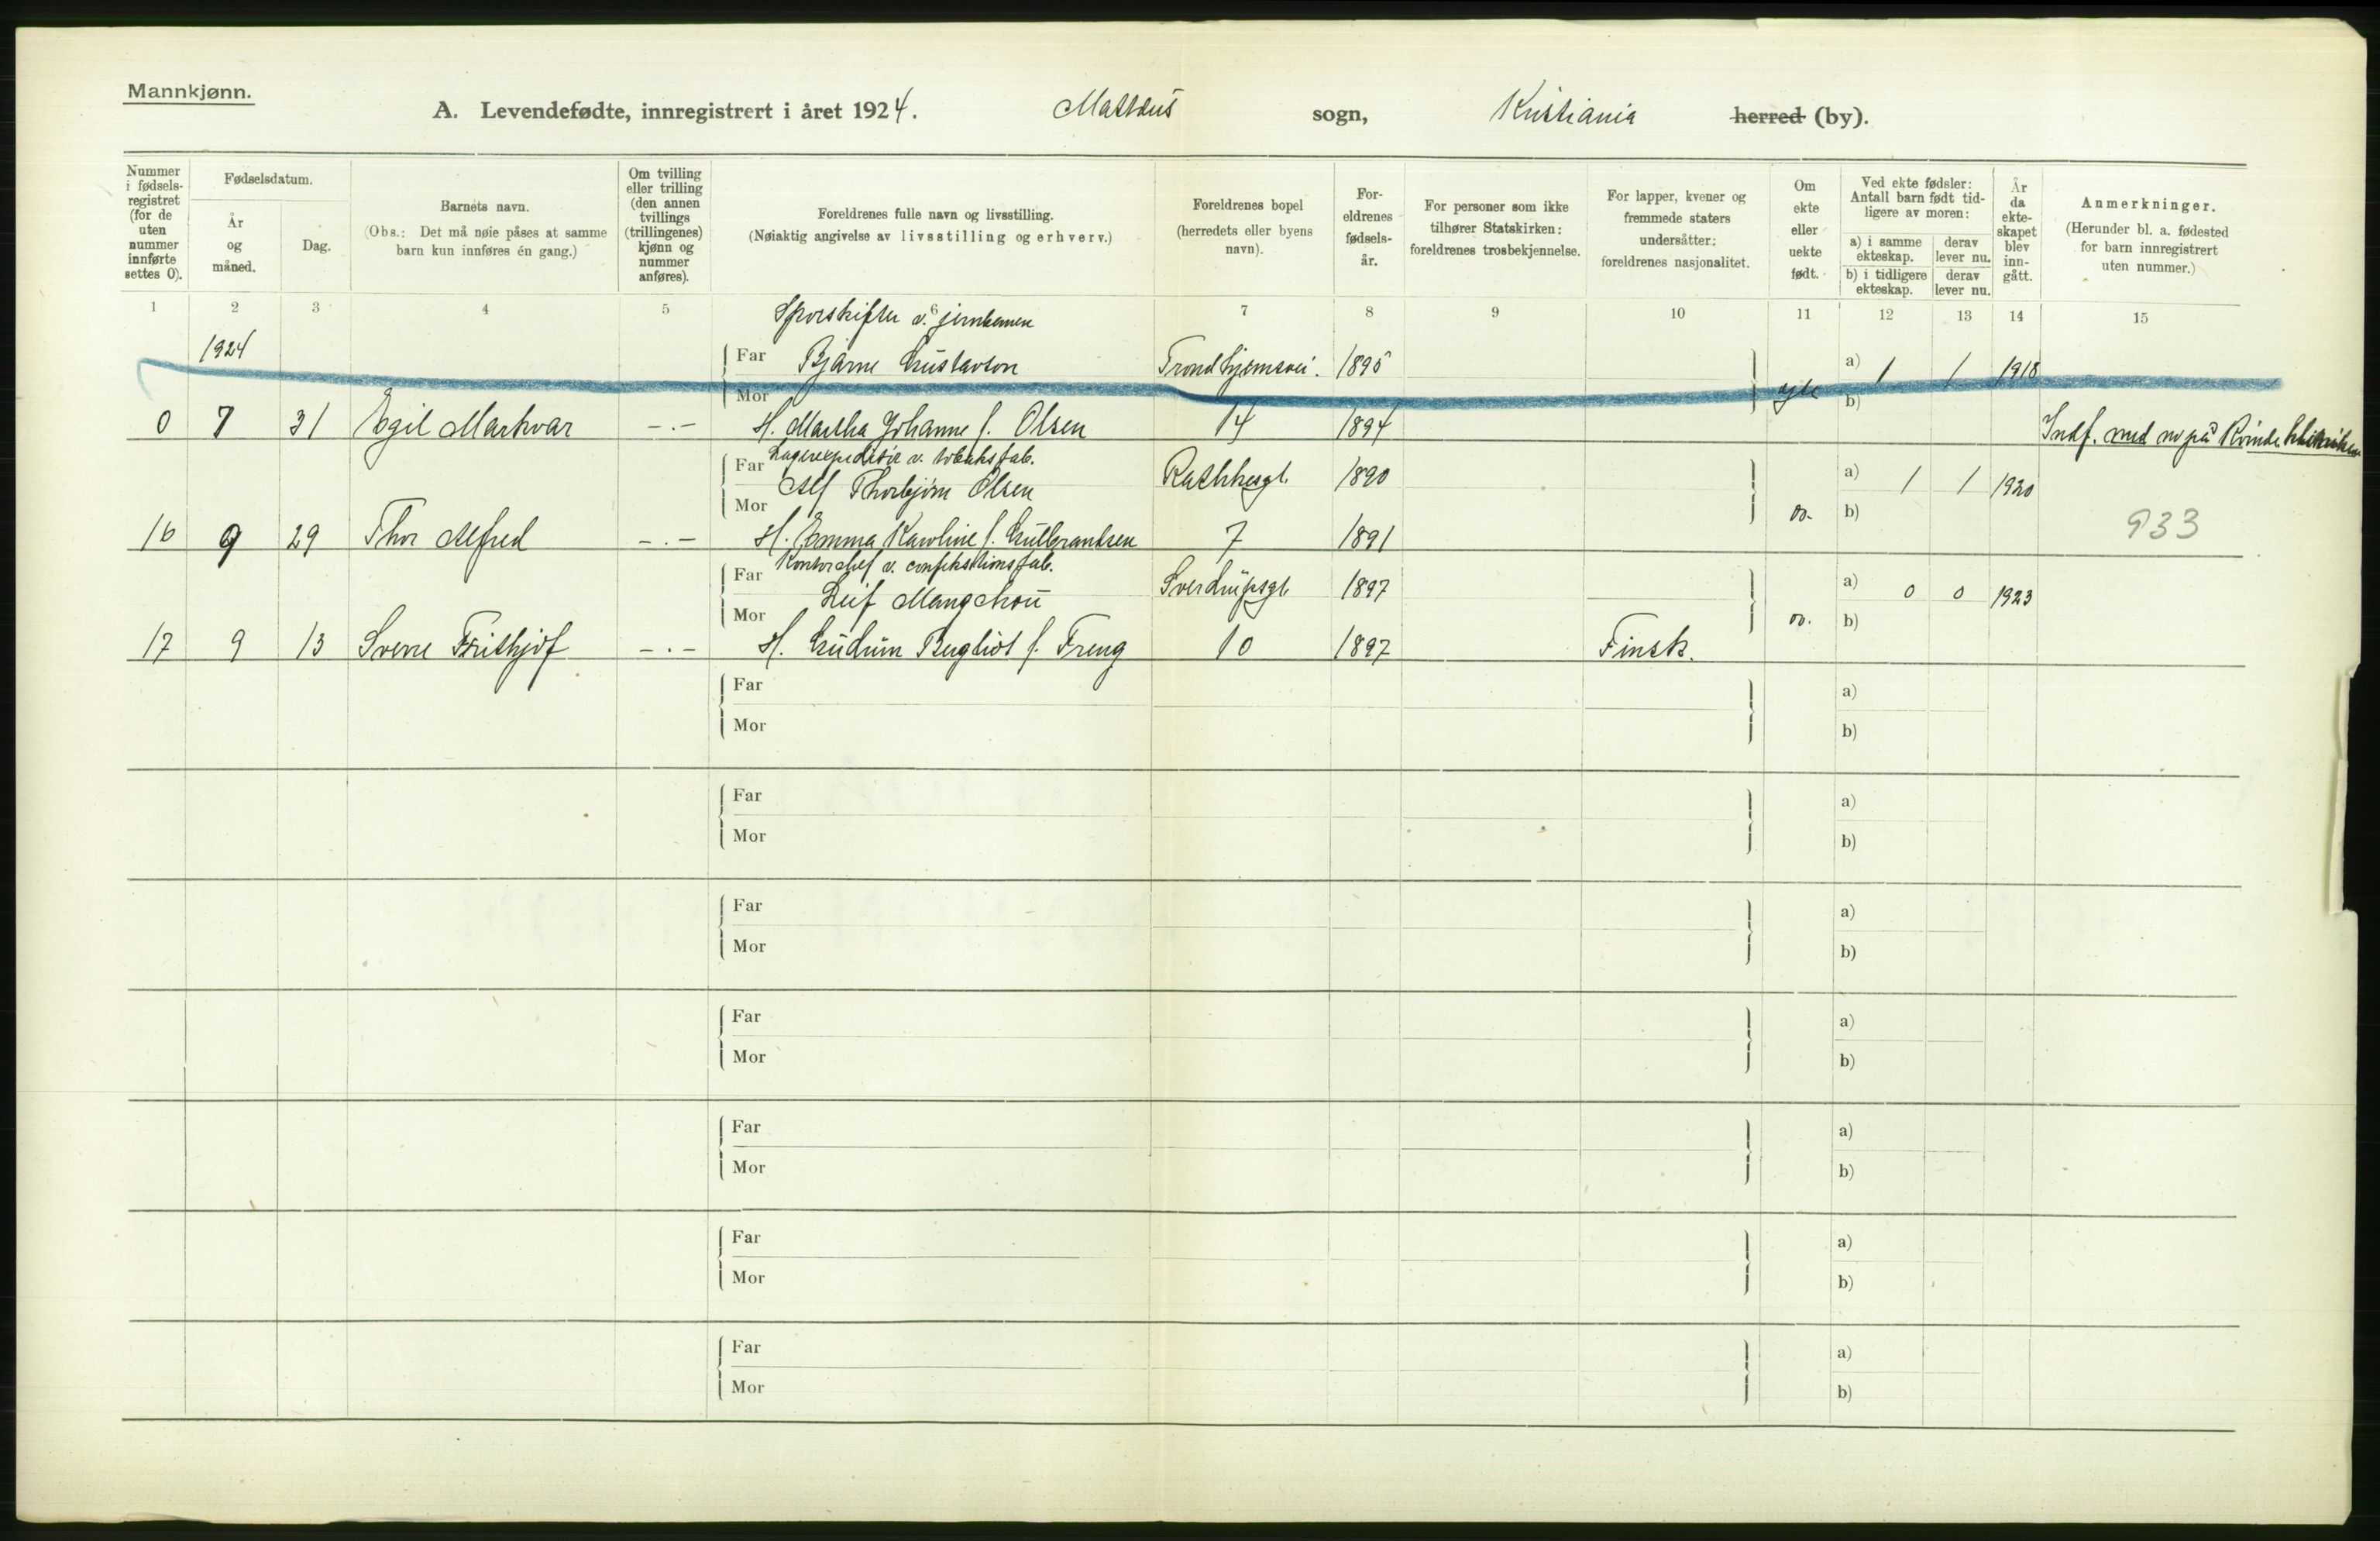 Mannkjønn.
A. Levendefødte, innregistrert i året 1924. Mattæus sogn, Kristiania herred (by).
Nummer i fødsels-registret (for de uten nummer innførte settes 0).
Fødselsdatum.
År og måned.
Dag.
Barnets navn.
(Obs.: Det må nøie påses at samme barn kun innføres én gang.)
Om tvilling eller trilling (den annen tvillings (trillingenes) kjønn og nummer anføres).
Foreldrenes fulle navn og livsstilling.
(Nøiaktig angivelse av livsstilling og erhverv.)
Foreldrenes bopel (herredets eller byens navn).
For-eldrenes fødsels-år.
For personer som ikke tilhører Statskirken: foreldrenes trosbekjennelse.
For lapper, kvener og fremmede staters undersåtter: foreldrenes nasjonalitet.
Om ekte eller uekte født.
Ved ekte fødsler: Antall barn født tid-ligere av moren:
a) i samme ekteskap. derav lever nu.
b) i tidligere ekteskap. derav lever nu.
År da ekte-skapet blev inn-gått.
Anmerkninger.
(Herunder bl. a. fødested for barn innregistrert uten nummer.)
1 2 3 4 5 6 7 8 9 10 11 12 13 14 15
Sporskifter v. jernbanen
1924 Far Bjarne Gustavson Trondhjemsvei. 1895 a) 1 1 1918
Mor b)
0 7 31 Egil Markvar -.- H. Martha Johanne f. Olsen 14 1894 Indf. med no på Kvindeklinikken
Far Lagerexpeditør v. tobaksfab.
Alf Thorbjørn Olsen Rathkesgt. 1890 a) 1 1 1920
Mor b)
16 9 29 Thor Alfred -.- H. Emma Karoline f. Gulbrandsen 7 1891 933
Far Kontorchef v. confektionsfab.
Leif Mangchou Sverdrupsgt. 1897 a) 0 0 1923
Mor b)
17 9 13 Sverre Frithjof -.- H. Gudrun Bergliot f. Freng 10 1897 Finsk.
Far a)
Mor b)
Far a)
Mor b)
Far a)
Mor b)
Far a)
Mor b)
Far a)
Mor b)
Far a)
Mor b)
Far a)
Mor b)